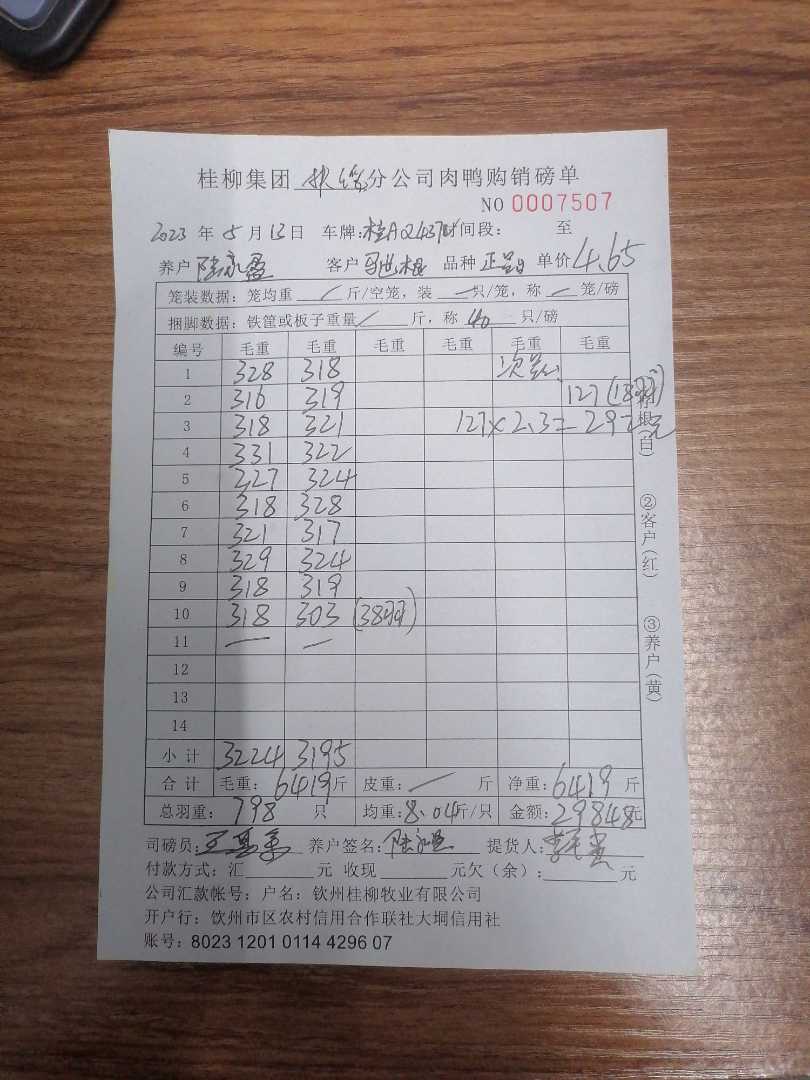 桂柳集团 分公司肉鸭购销磅单
NO 0007507
2023 年 5 月 13 日 车牌:桂A 时间段: 至
养户 陆永盈 客户 品种 正品 单价 4.65
笼装数据: 笼均重 / 斤/空笼, 装 — 只/笼, 称 — 笼/磅
捆脚数据: 铁筐或板子重量 / 斤, 称 40 只/磅
编号 毛重 毛重 毛重 毛重 毛重 毛重
1 328 318 次品
2 316 319 127 (18羽)
3 318 321 127×2.3=292元
4 331 322
5 327 324
6 318 328
7 321 317
8 329 324
9 318 319
10 318 303 (38羽)
11 — —
12
13
14
小计 3224 3195
合计 毛重: 6419 斤 皮重: — 斤 净重: 6419 斤
总羽重: 798 只 均重: 8.04 斤/只 金额: 29848 元
司磅员: 养户签名: 陆永盈 提货人:
付款方式: 汇 元 收现 元欠(余): 元
公司汇款帐号: 户名: 钦州桂柳牧业有限公司
开户行: 钦州市区农村信用合作联社大垌信用社
账号: 8023 1201 0114 4296 07
根(白)
②客户(红)
③养户(黄)